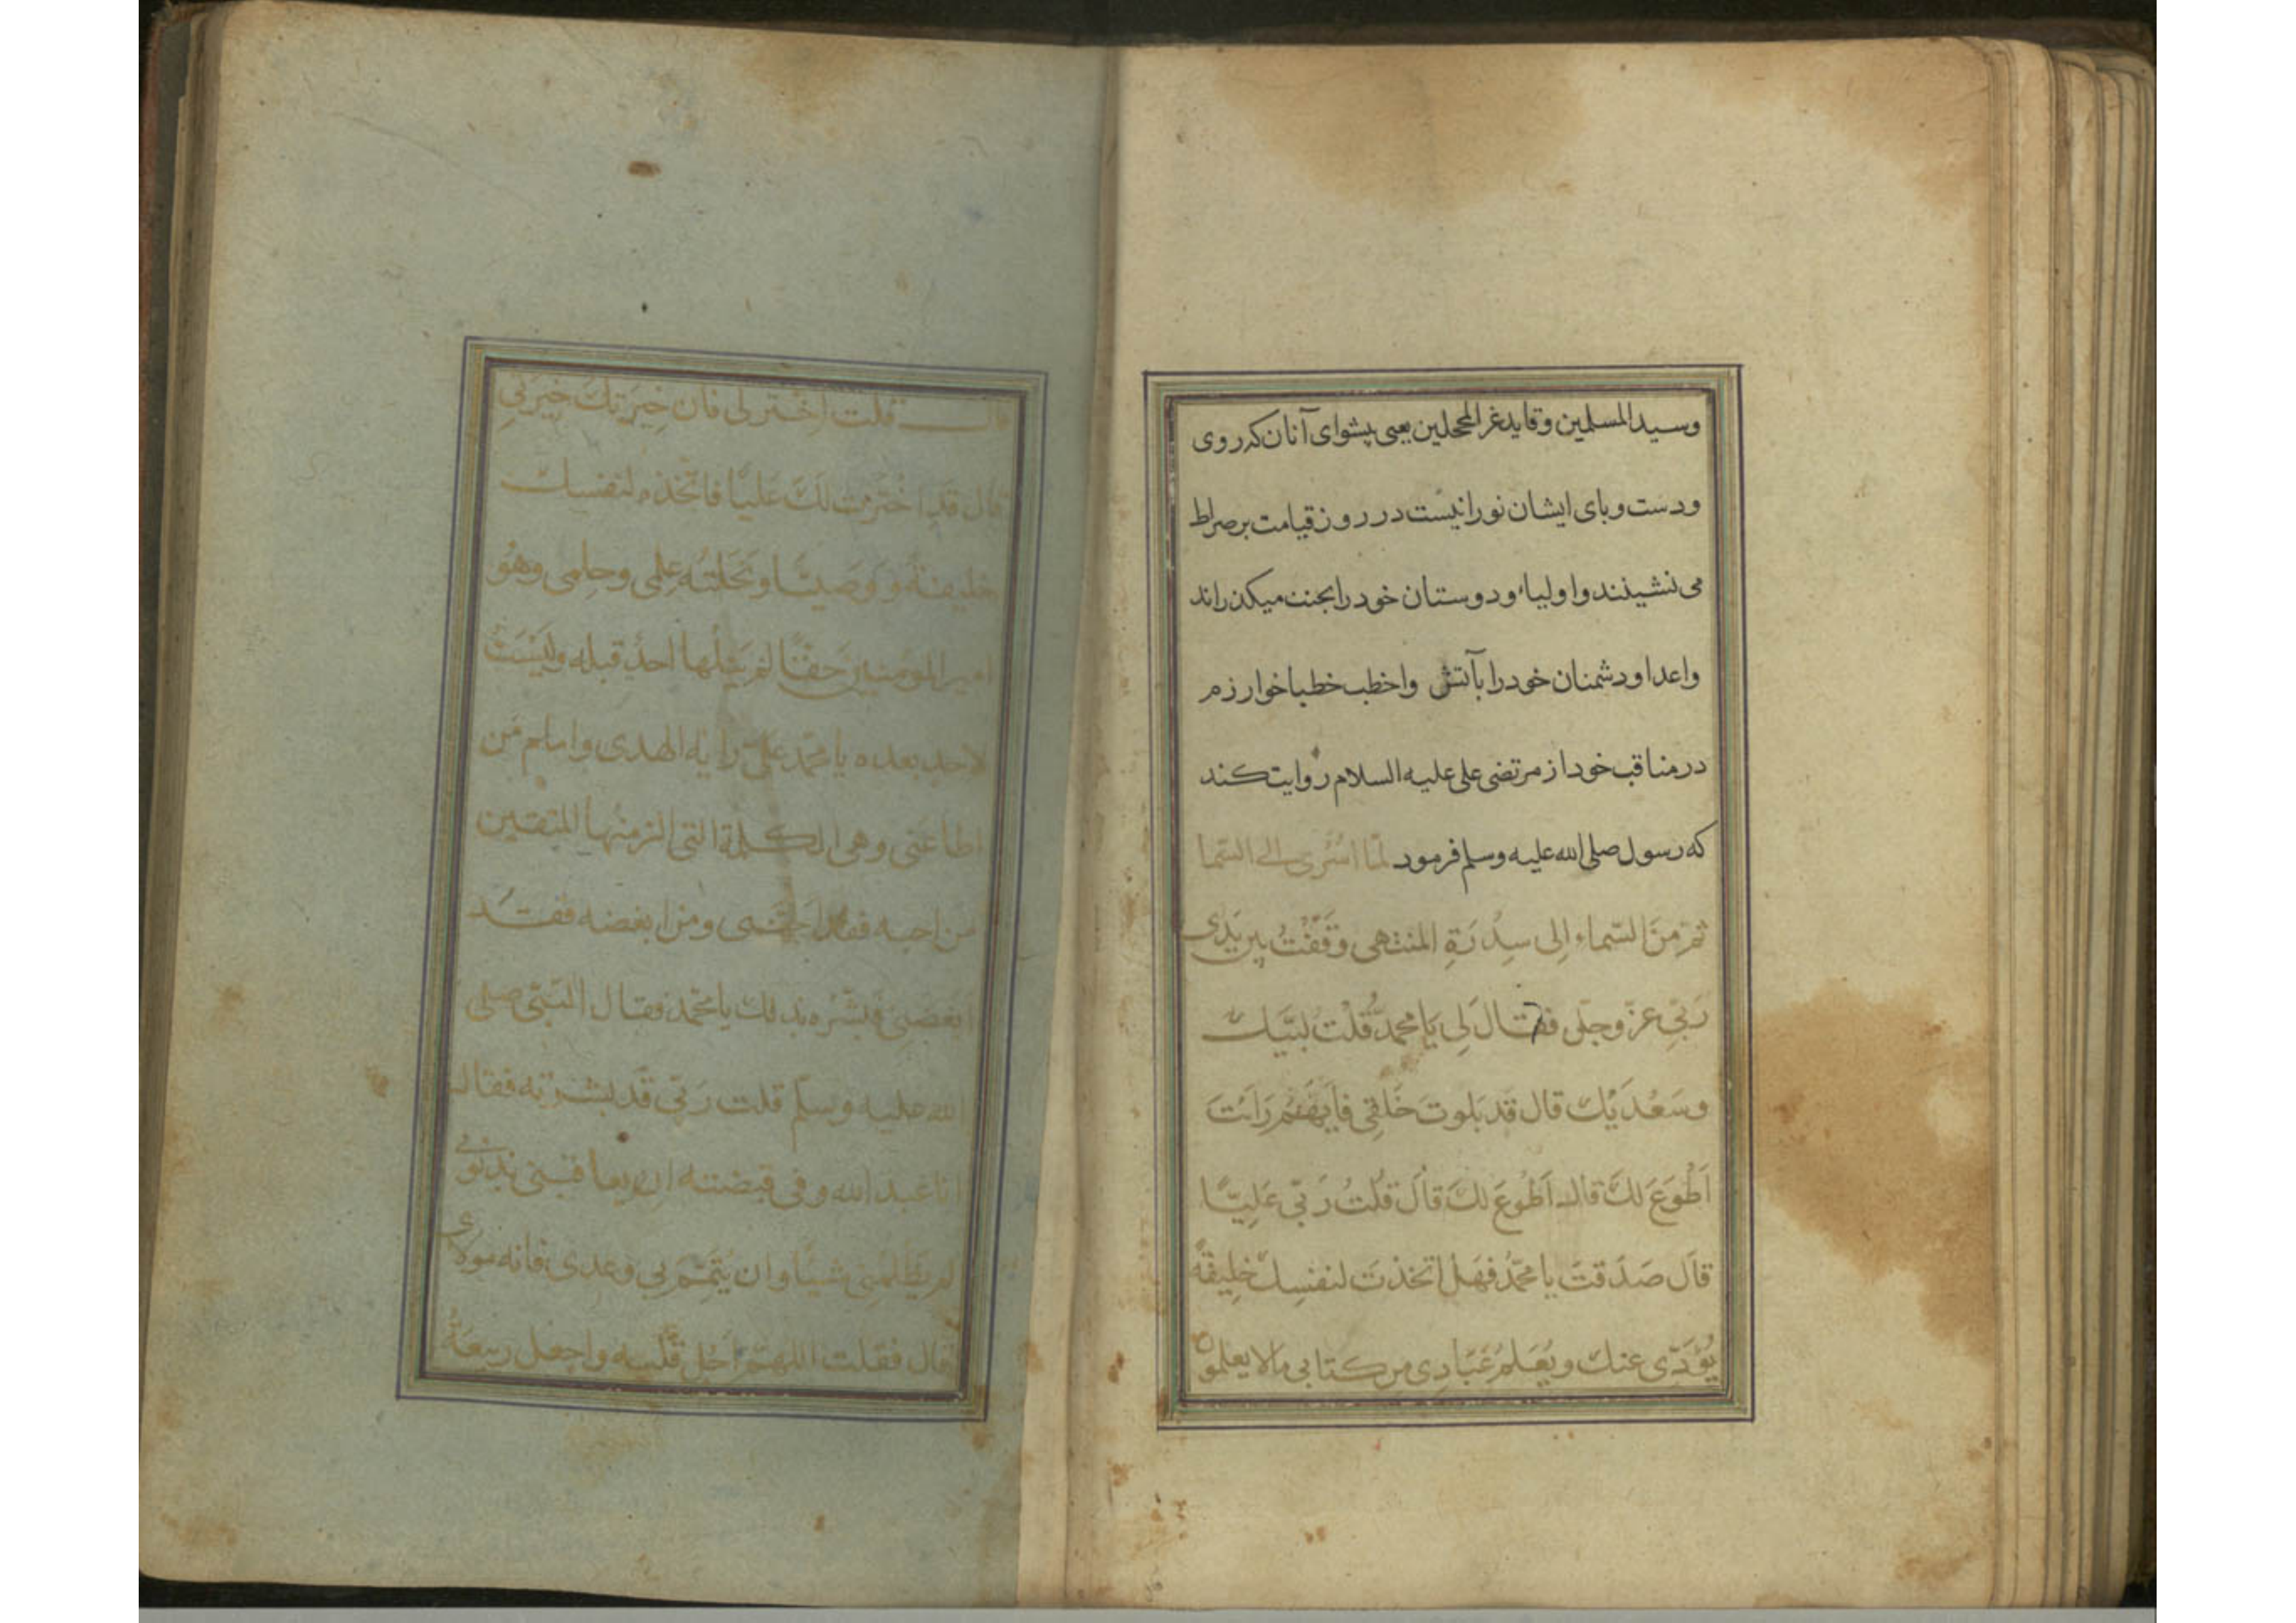 وسید المسلمین وقاید غر المحجلین یعنی پیشوای آنان که روی
ودست وبای ایشان نورانیست در روز قیامت بر صراط
می نشینند واولیاء ودوستان خود را بجنت میکذراند
واعدا ودشمنان خود را بآتش واخطب خطبا خوارزم
در مناقب خود از مرتضی علی علیه السلام روایت کند
که رسول صلی الله علیه وسلم فرمود لمّا اُسْری الی السّما
ثمّ مِنَ السّماء اِلی سِدْرَةِ المنتهی وَقَفْتُ بین یَدَی
رَبّی عزّ وجلّ فقال لِی یَا محمدُ قُلْت لبّیك
وسَعْدَیْك قال قَد بَلوتَ خَلقِی فایّهُم رَاَیْتَ
اَطْوَعَ لَكَ قال اَطْوَعَ لكَ قالَ قُلتُ رَبّی عَلِیّاً
قالَ صَدَقتَ یا محمّد فَهَل اتّخذتَ لنفسِك خلِیفَةً
یُؤَدّی عنك ویُعَلّمُ عِبَادِی من کتابی مالا یعلمون
قال قلت اخْتَر لی فان خِیَرَتك خِیَرَتی
قال قَد اخْتَرْت لَكَ عَلیّاً فاتّخذه لنفسك
خلیفةً ووَصیّاً ونَحَلتُه عِلمی وحِلمی وهُو
امیر المومنین حَقّاً لم یَنَلْها احدٌ قبله ولَیْسَتْ
لاحد بعده یا محمّد علیّ رایة الهدی وامام مَن
اطاعَنی وهی الکلمة التی الزمتُها المتقین
من احبه فقد احبّنی ومن ابغضه فقد
ابغضنی فَبَشّرْه بذلك یا محمّد فقال النّبّی صلی
الله علیه وسلّم قلت رَبّی قَد بشّرْته فقال
انا عَبد الله وفی قبضته ان یعاقبنی بذنوبی
لم یَظْلِمْنِی شیئاً وان یُتَمِّم لی وعدی فانه مولای
قال فقلت اللهمّ اَجْلِ قَلْبَه واجعل ربیعَهُ